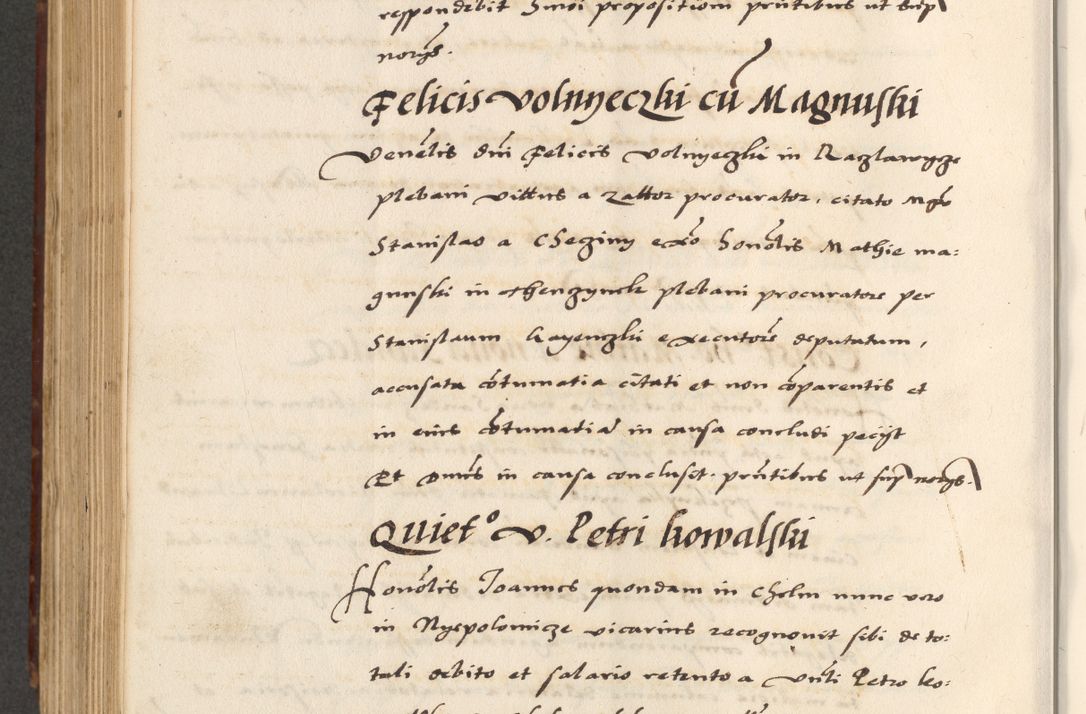 respondebit Simõi propositioni pñtibus ut sup
norijs.
Felicis Volnyeczki cũ Magnuski
Venẽlis dñi Felicis Volnyeczki in Raczlawycze
plebani vittus a Zathor procurator, citato Mgrõ
Stanislao a Checziny exõ honõlis Mathie ma:
gnuski in Chenczynek plebani procuratore per
Stanislaum Kayenczki executorẽ deputatum,
accusata cõtumatia citati et non cõparentis et
in eius cõtumatiã in causa concludi pecijt
Et Dnũs in causa conclusit. pñtibus ut sup norijs.
Quiet° V. Petri Kowalski
Honõlis Joannes quondam in Chelm nunc vero
in Nyepolomicze vicarius recognovit sibi de to:
tali debito et salario retento a Vñli Petro ko: